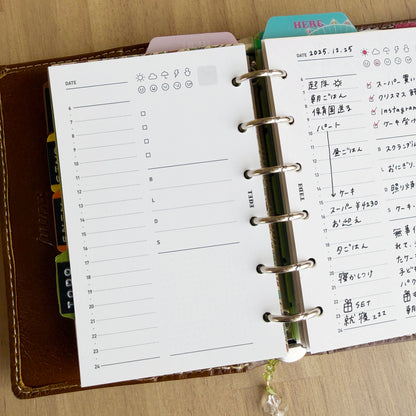 DATE
6
7
8
9
10
11
12
13
14
15
16
17
18
19
20
21
22
23
24
B
L
D
S
HERE
DATE 2025.12.25
6
7 起床
8 朝ごはん
9 保育園送り
10 パート
11
12 昼ごはん
13
14
15 ケーキ
16 スーパー ¥4230
17 お迎え
18
19 夕ごはん
20
21 寝かしつけ
22
23 SET
24 就寝 zzz
スーパー 買い
クリスマス
Instagra
ケーキ
B スクランブル
L おにぎり
D 照り焼
S ケーキ・
無事
れて、
たケー
手ピ
パク
朝